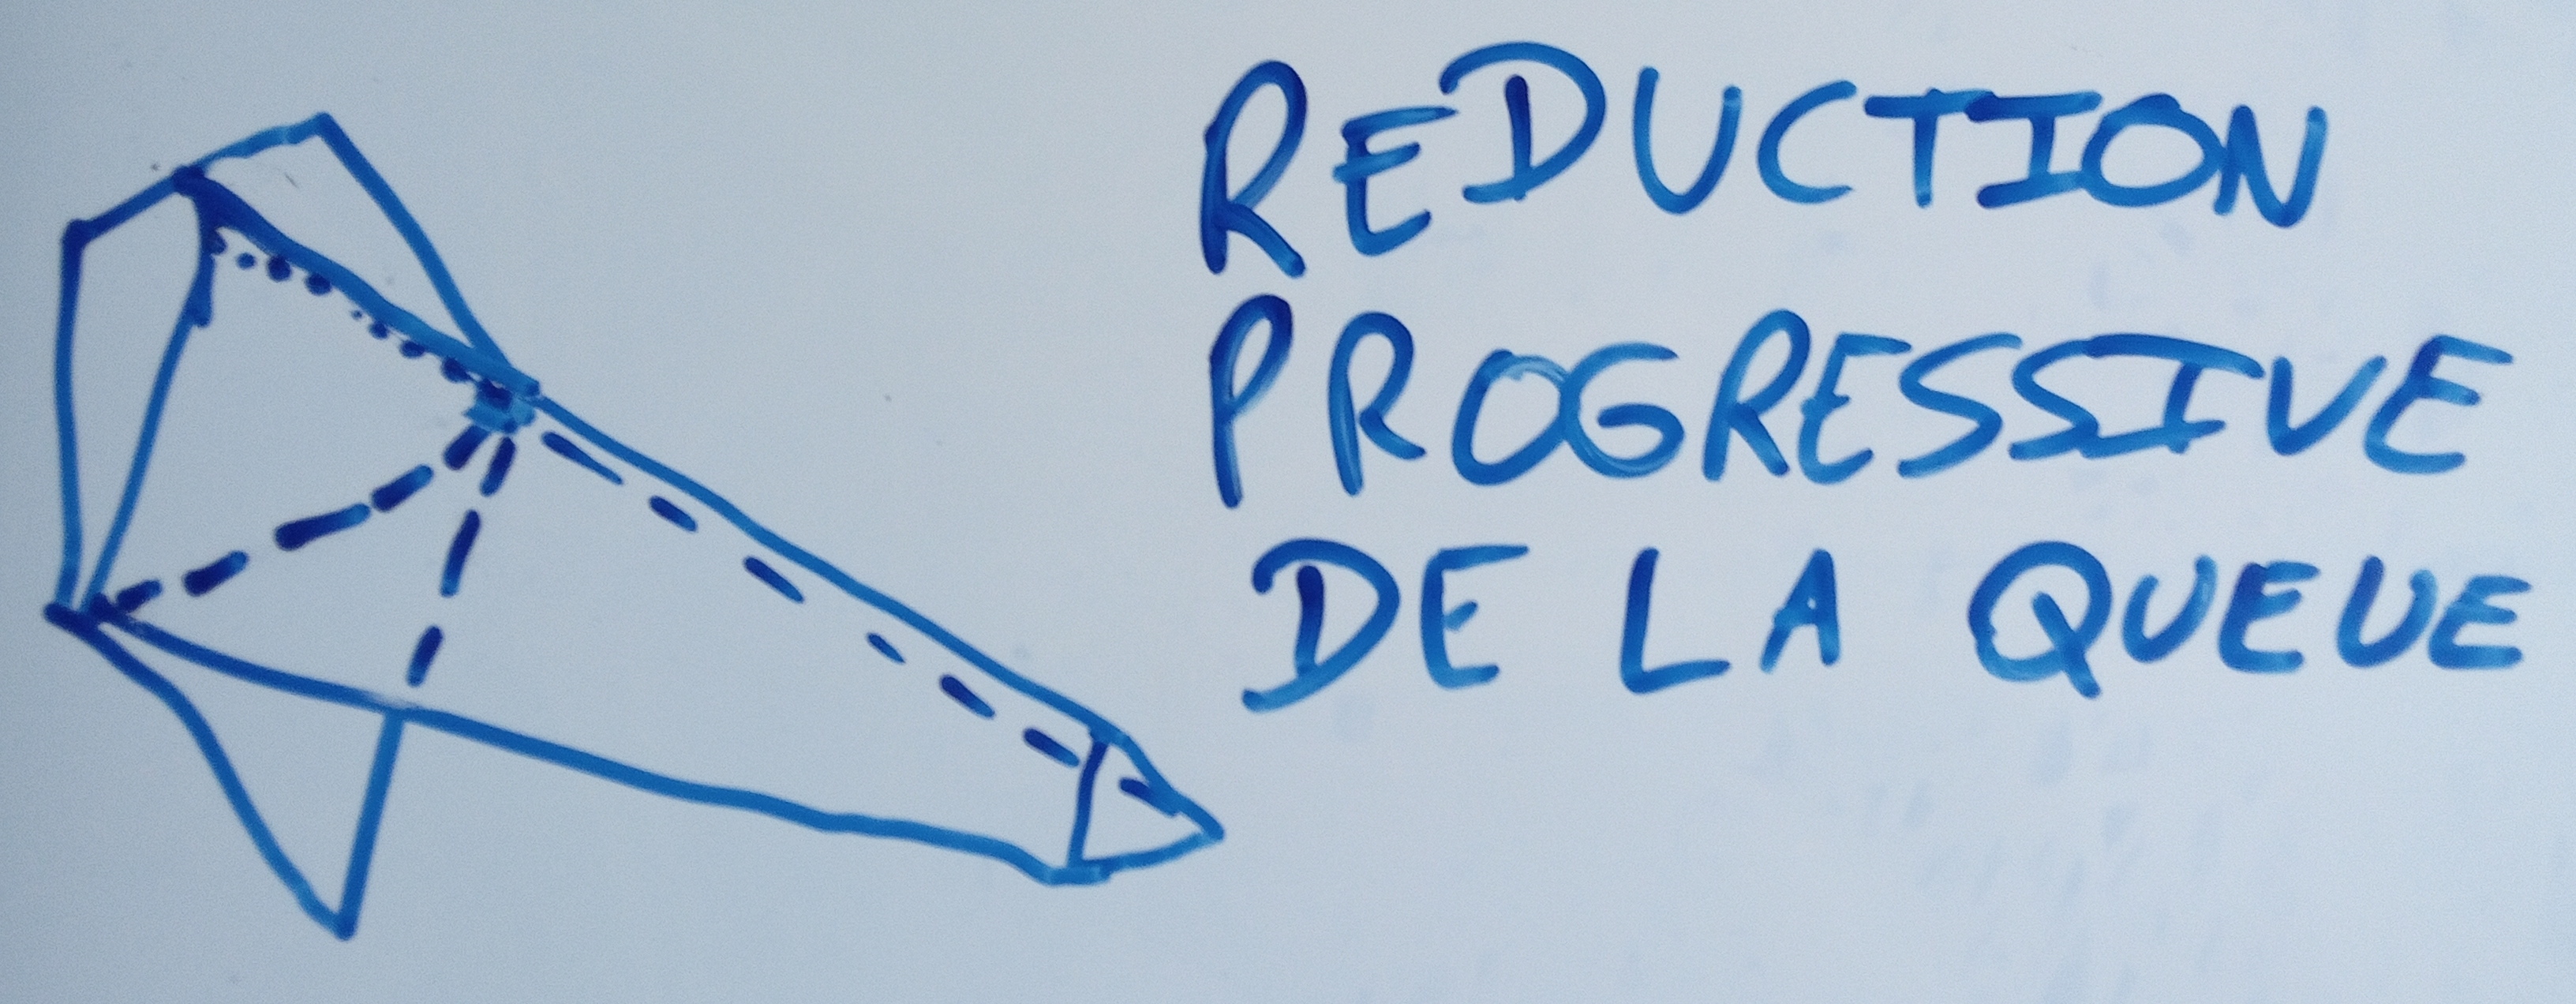 REDUCTION
PROGRESSIVE
DE LA QUEUE